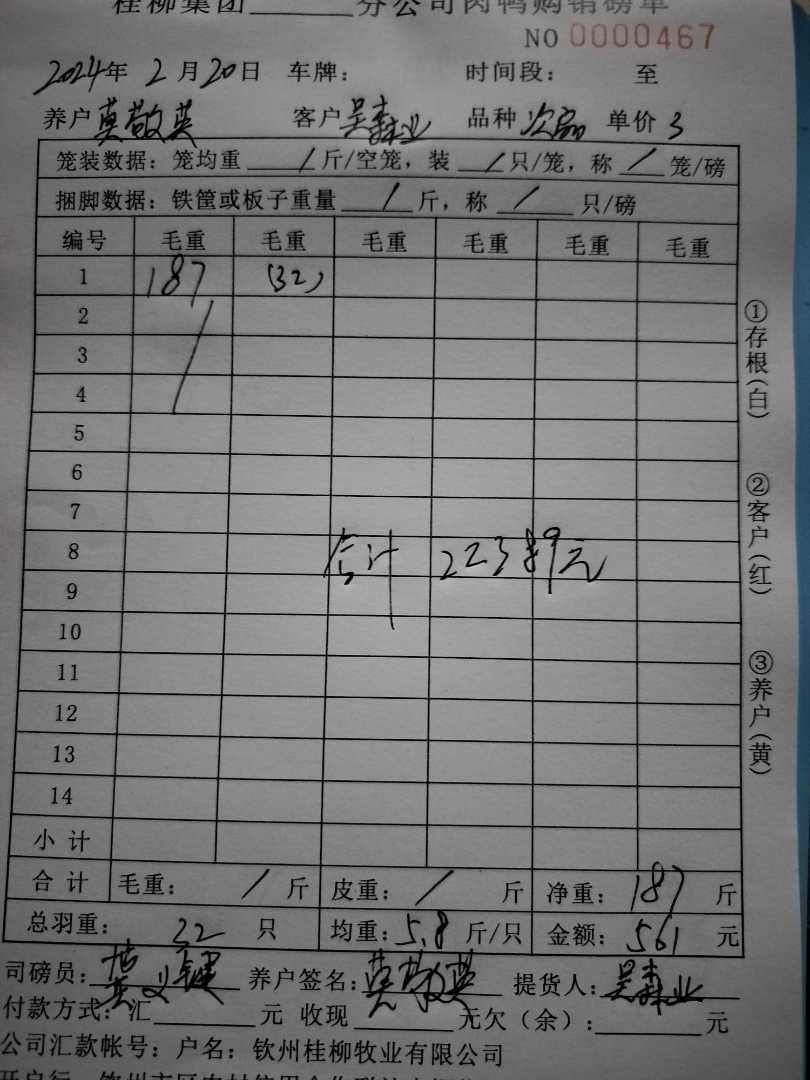 桂柳集团______分公司肉鸭购销磅单
NO 0000467
2024年 2月20日 车牌： 时间段： 至
养户 莫敬英 客户 吴森业 品种 次品 单价 3
笼装数据：笼均重 / 斤/空笼，装 / 只/笼，称 / 笼/磅
捆脚数据：铁筐或板子重量 / 斤，称 / 只/磅
编号 毛重 毛重 毛重 毛重 毛重 毛重
1 187 (32)
2
3
4
5
6
7
8
合计 223 9元
9
10
11
12
13
14
小计
合计 毛重： / 斤 皮重： / 斤 净重：187 斤
总羽重： 32 只 均重：5.8 斤/只 金额：561 元
司磅员： 养户签名：莫敬英 提货人：吴森业
付款方式：汇______元 收现______元欠（余）：______元
公司汇款帐号：户名：钦州桂柳牧业有限公司
①存根(白)
②客户(红)
③养户(黄)